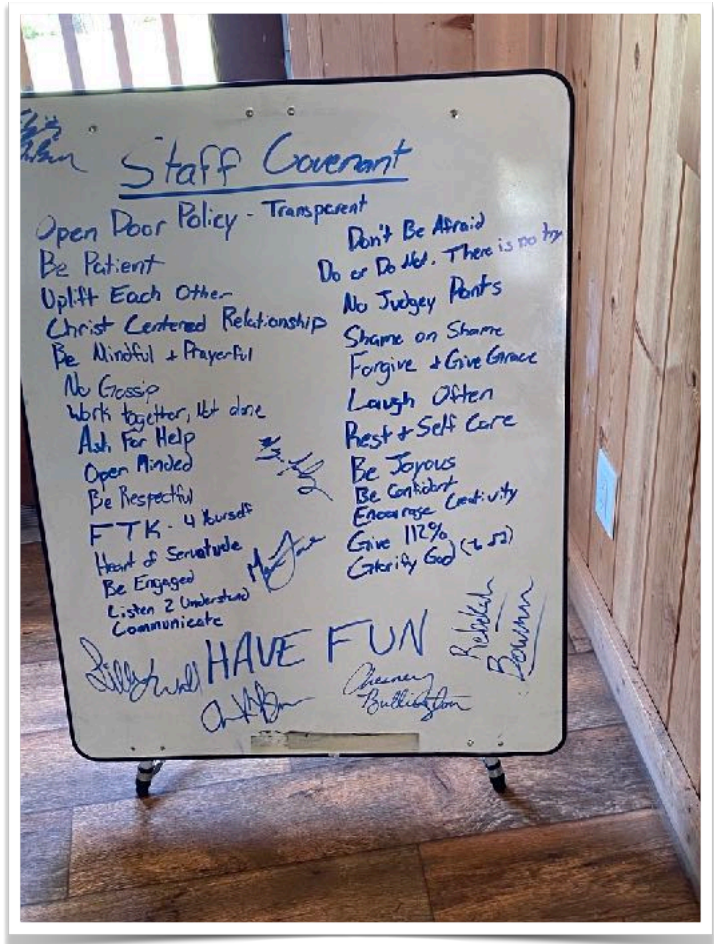 Staff Covenant
Open Door Policy - Transparent
Be Patient
Uplift Each Other
Christ Centered Relationship
Be Mindful + Prayerful
No Gossip
Work together, Not alone
Ask For Help
Open Minded
Be Respectful
FTK - 4 Yourself
Heart of Servatude
Be Engaged
Listen 2 Understand
Communicate
Don't Be Afraid
Do or Do Not. There is no try
No Judgey Pants
Shame on Shame
Forgive + Give Grace
Laugh Often
Rest + Self Care
Be Joyous
Be Confident
Encourage Creativity
Give 112%
Glorify God
HAVE FUN
Rebekah
Bowman
Chesney
Bullington